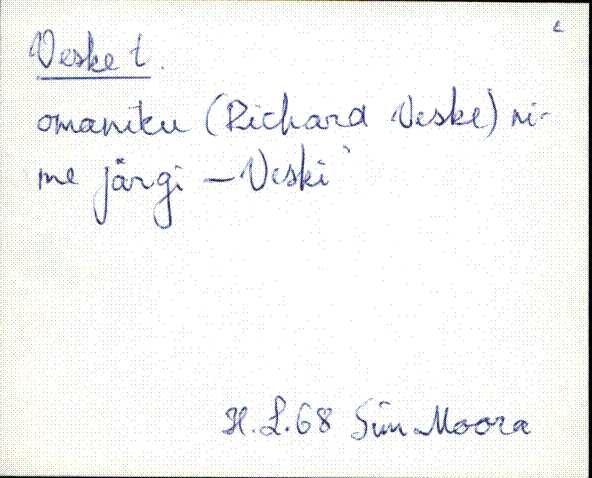 Veske t.
omaniku (Richard Veske) ni-
me järgi – Veski
H. L. 68 Siim Moora